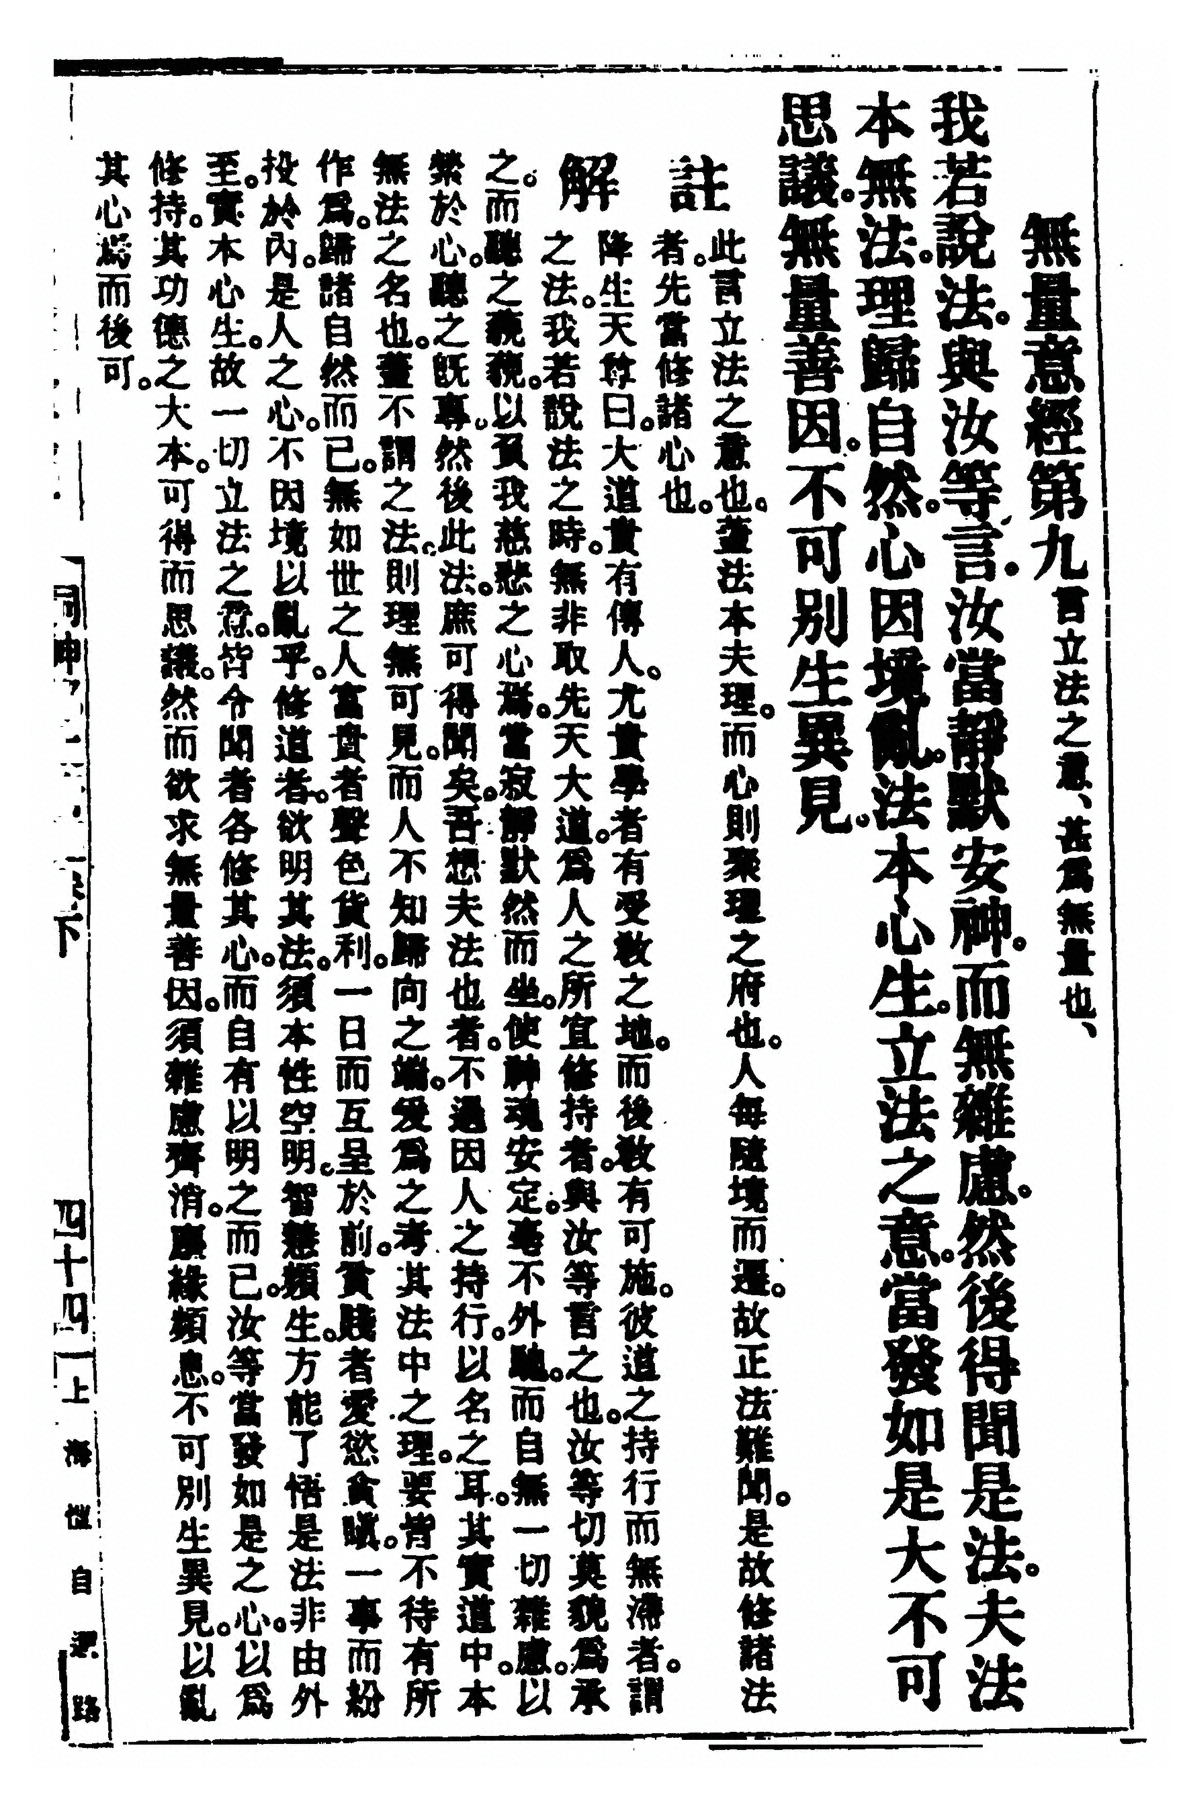 無量意經第九言立法之意、甚爲無量也、
我若說法。與汝等言。汝當靜默安神。而無雜慮。然後得聞是法。夫法
本無法。理歸自然。心因境亂。法本心生。立法之意。當發如是大不可
思議。無量善因。不可別生異見。
註解
此言立法之意也。蓋法本夫理。而心則聚理之府也。人每隨境而遷。故正法難聞。是故修諸法
者。先當修諸心也。
降生天尊曰。大道貴有傳人。尤貴學者有受敎之地。而後敎有可施。彼道之持行而無滯者。謂
之法。我若說法之時。無非取先天大道。爲人之所宜修持者。與汝等言之也。汝等切莫貌爲承
之。而聽之藐藐。以負我慈悲之心焉。當寂靜默然而坐。使神魂安定。毫不外馳。而自無一切雜慮。以
縈於心。聽之旣專。然後此法。庶可得聞矣。吾想夫法也者。不過因人之持行。以名之耳。其實道中。本
無法之名也。蓋不謂之法。則理無可見。而人不知歸向之端。爰爲之考其法中之理。要皆不待有所
作爲。歸諸自然而已。無如世之人。富貴者聲色貨利。一日而互呈於前。貧賤者愛慾貪嗔。一事而紛
投於內。是人之心。不因境以亂乎。修道者。欲明其法。須本性空明。智慧頻生。方能了悟是法非由外
至。實本心生。故一切立法之意。皆令聞者各修其心。而自有以明之而已。汝等當發如是之心。以爲
修持。其功德之大本。可得而思議。然而欲求無量善因。須雜慮齊消。塵緣頻息。不可別生異見。以亂
其心焉而後可。
卷下
四十四
上海愷自邇路